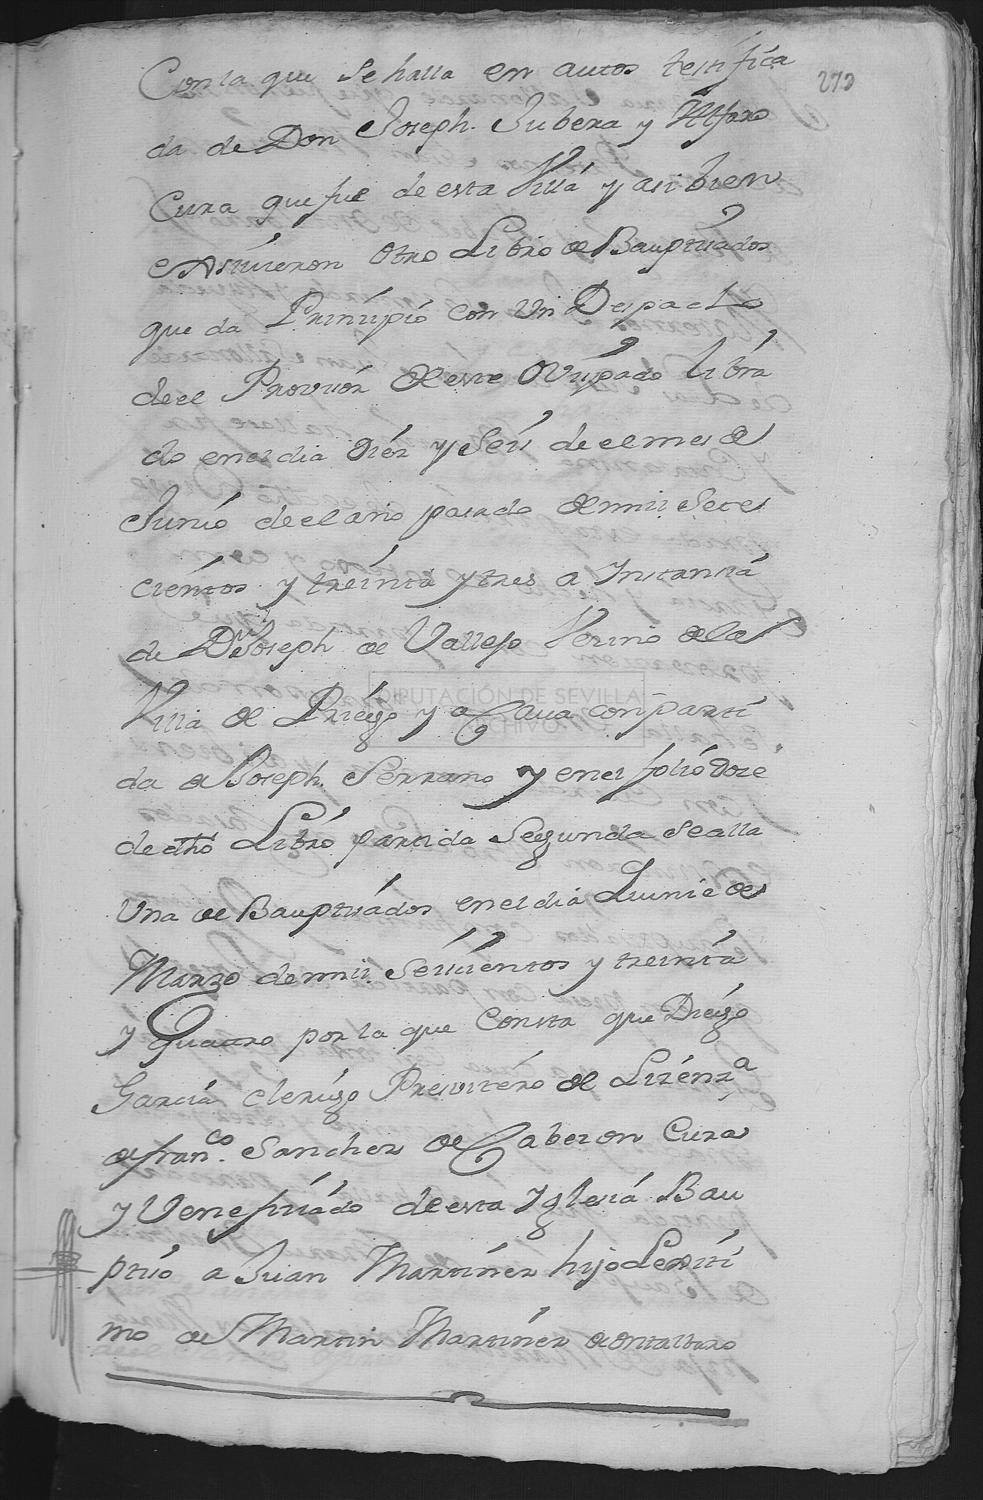 273
Con la que se halla en autos testifica
da de Don Joseph. Jubera y Alfaro
Cura que fue de esta Villa y asi bien
exsivieron Otro Libro de Bauptisados
que da Prinsipio con Un Despacho
de el Provisor de este Ovispado Libra
do en el dia Diez y Seis de el mes de
Junio de el año pasado de mil Sete
cientos y treinta y tres a Instansia
de Dn Joseph de Vallejo Vesino de la
Villa de Priego y a Cava con parti
da de Joseph. Serrano y en el folio Doze
de dho Libro partida Segunda Se alla
Una de Bauptisados en el dia Quinse de
Marzo de mil Seiscientos y treinta
y Quatro por la que Consta que Diego
Garcia clerigo Presvitero de Lizenza
de franco. Sanchez de Cabezon Cura
y Venefisiado de esta Yglesia Bau
ptiso a Juan Martinez hijo Lexiti
mo de Martin Martinez de ontalbaro
DIPUTACIÓN DE SEVILLA
ARCHIVO